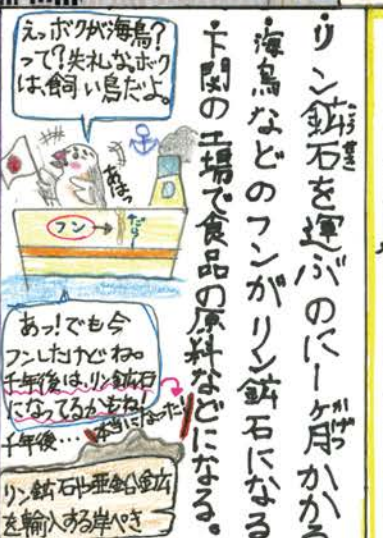 ・リン鉱石を運ぶのに一ヶ月かかる
こうせき
かげつ
・海鳥などのフンがリン鉱石になる
・下関の工場で食品の原料などになる。
えっボクが海鳥?
って?失礼な。ボク
は、飼い鳥だよ。
あはっ
フン→
あっ!でも今
フンしたけどね。
千年後は、リン鉱石
になってるかもね!
千年後…
本当になった!
リン鉱石や亜鉛鉱
を輸入する岸ぺき